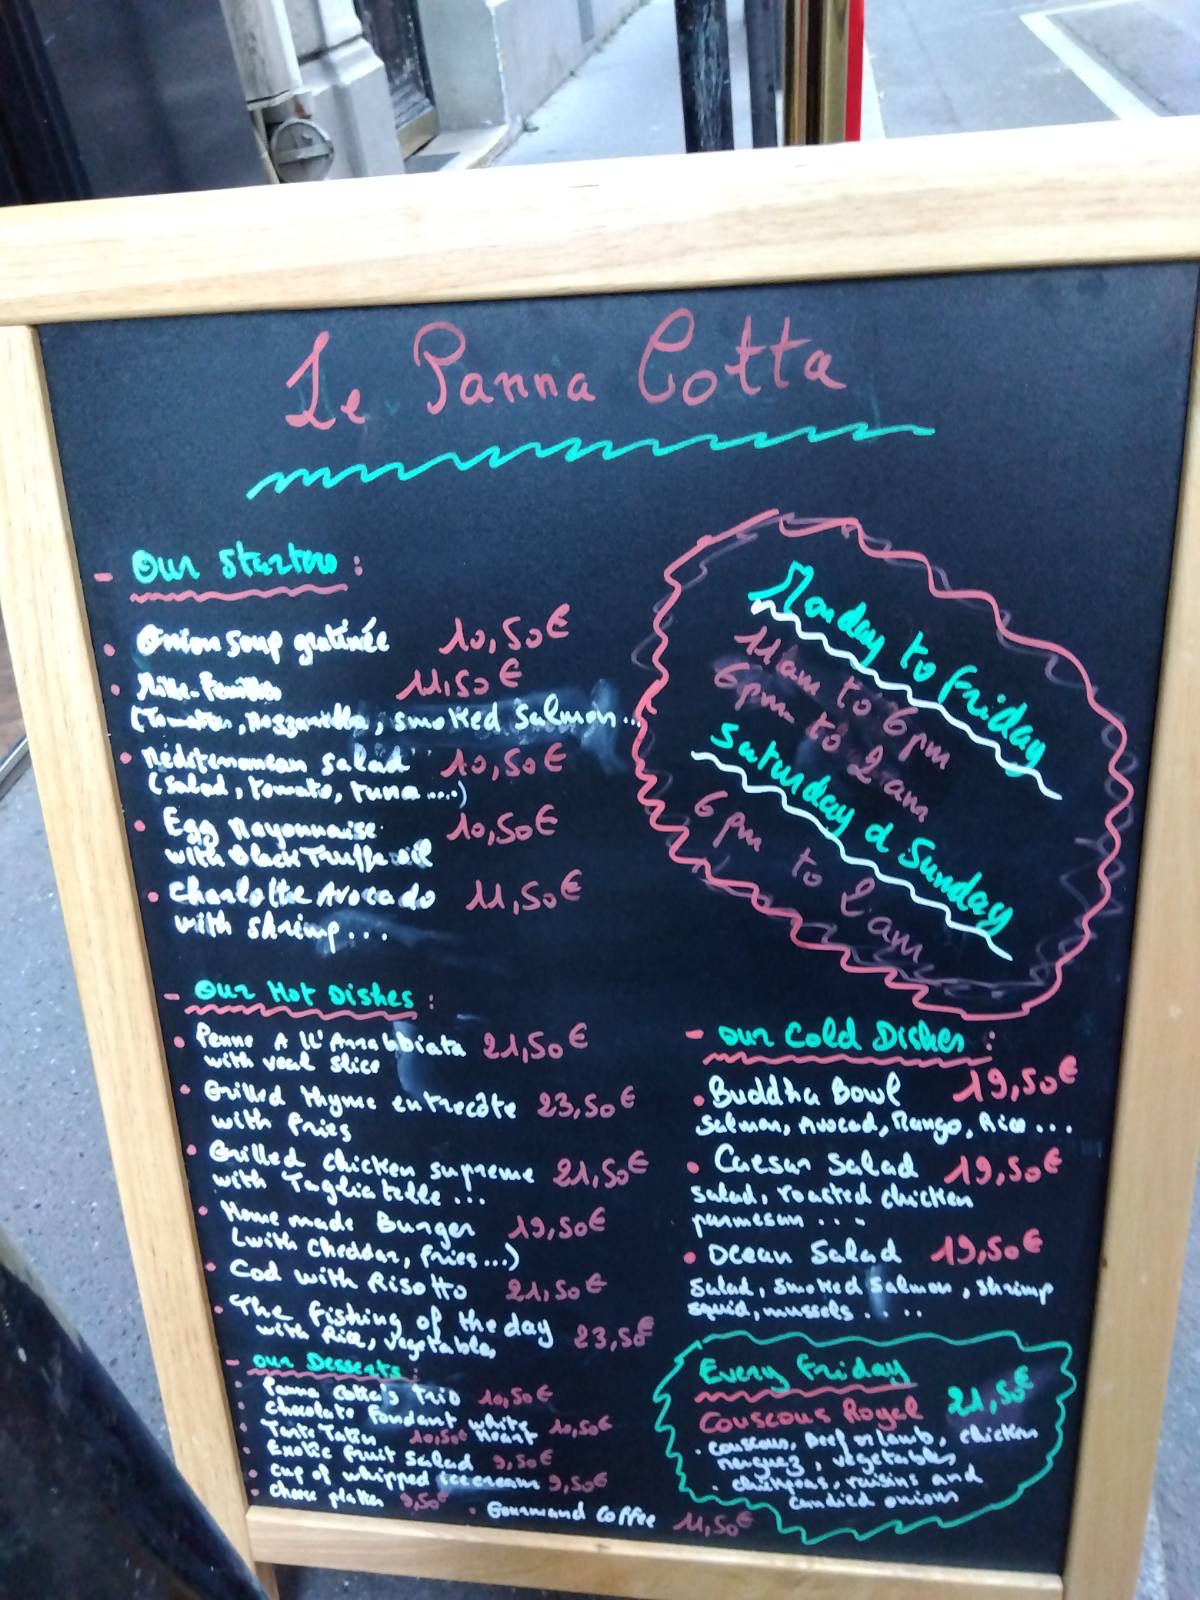 Le Panna Cotta
- Our Starters :
. Onion soup gratinée 10,50€
. Mille-Feuilles 11,50€
(Tomatoes, Mozzarella, smoked Salmon...
. Méditerranean salad 10,50€
(Salad, tomato, tuna ....)
. Egg Mayonnaise 10,50€
with Black Truffe oil
. Charlotte Avocado 11,50€
with shrimp...
Monday to Friday
11am to 6pm
6pm to 2am
Saturday & Sunday
6pm to 2am
- Our Hot Dishes :
. Penne A ll'Arrabbiata 21,50€
with veal slice
. Grilled thyme entrecôte 23,50€
with Fries
. Grilled chicken supreme 21,50€
with Tagliatelle ...
. Home made Burger 19,50€
(with cheddar, fries...)
. Cod with Risotto 21,50€
. The Fishing of the day 23,50€
with Rice, vegetables
- our Cold Dishes :
. Buddha Bowl 19,50€
Salmon, Avocad, Mango, Rice ...
. Caesar Salad 19,50€
salad, roasted chicken
parmesan ...
. Ocean Salad 19,50€
Salad, smoked Salmon, shrimp
squid, mussels ....
- our Desserts :
. Panna Cotta's trio 10,50€
. Chocolate Fondant white Heart 10,50€
. Tarte Tatin 10,50€
. Exotic fruit Salad 9,50€
. cup of whipped icecream 9,50€
. cheese platter 9,50€
. Gourmand Coffee 11,50€
Every Friday
Couscous Royal 21,50€
. couscous, beef or lamb, chicken
merguez, vegetables
. chickpeas, raisins and
candied onions